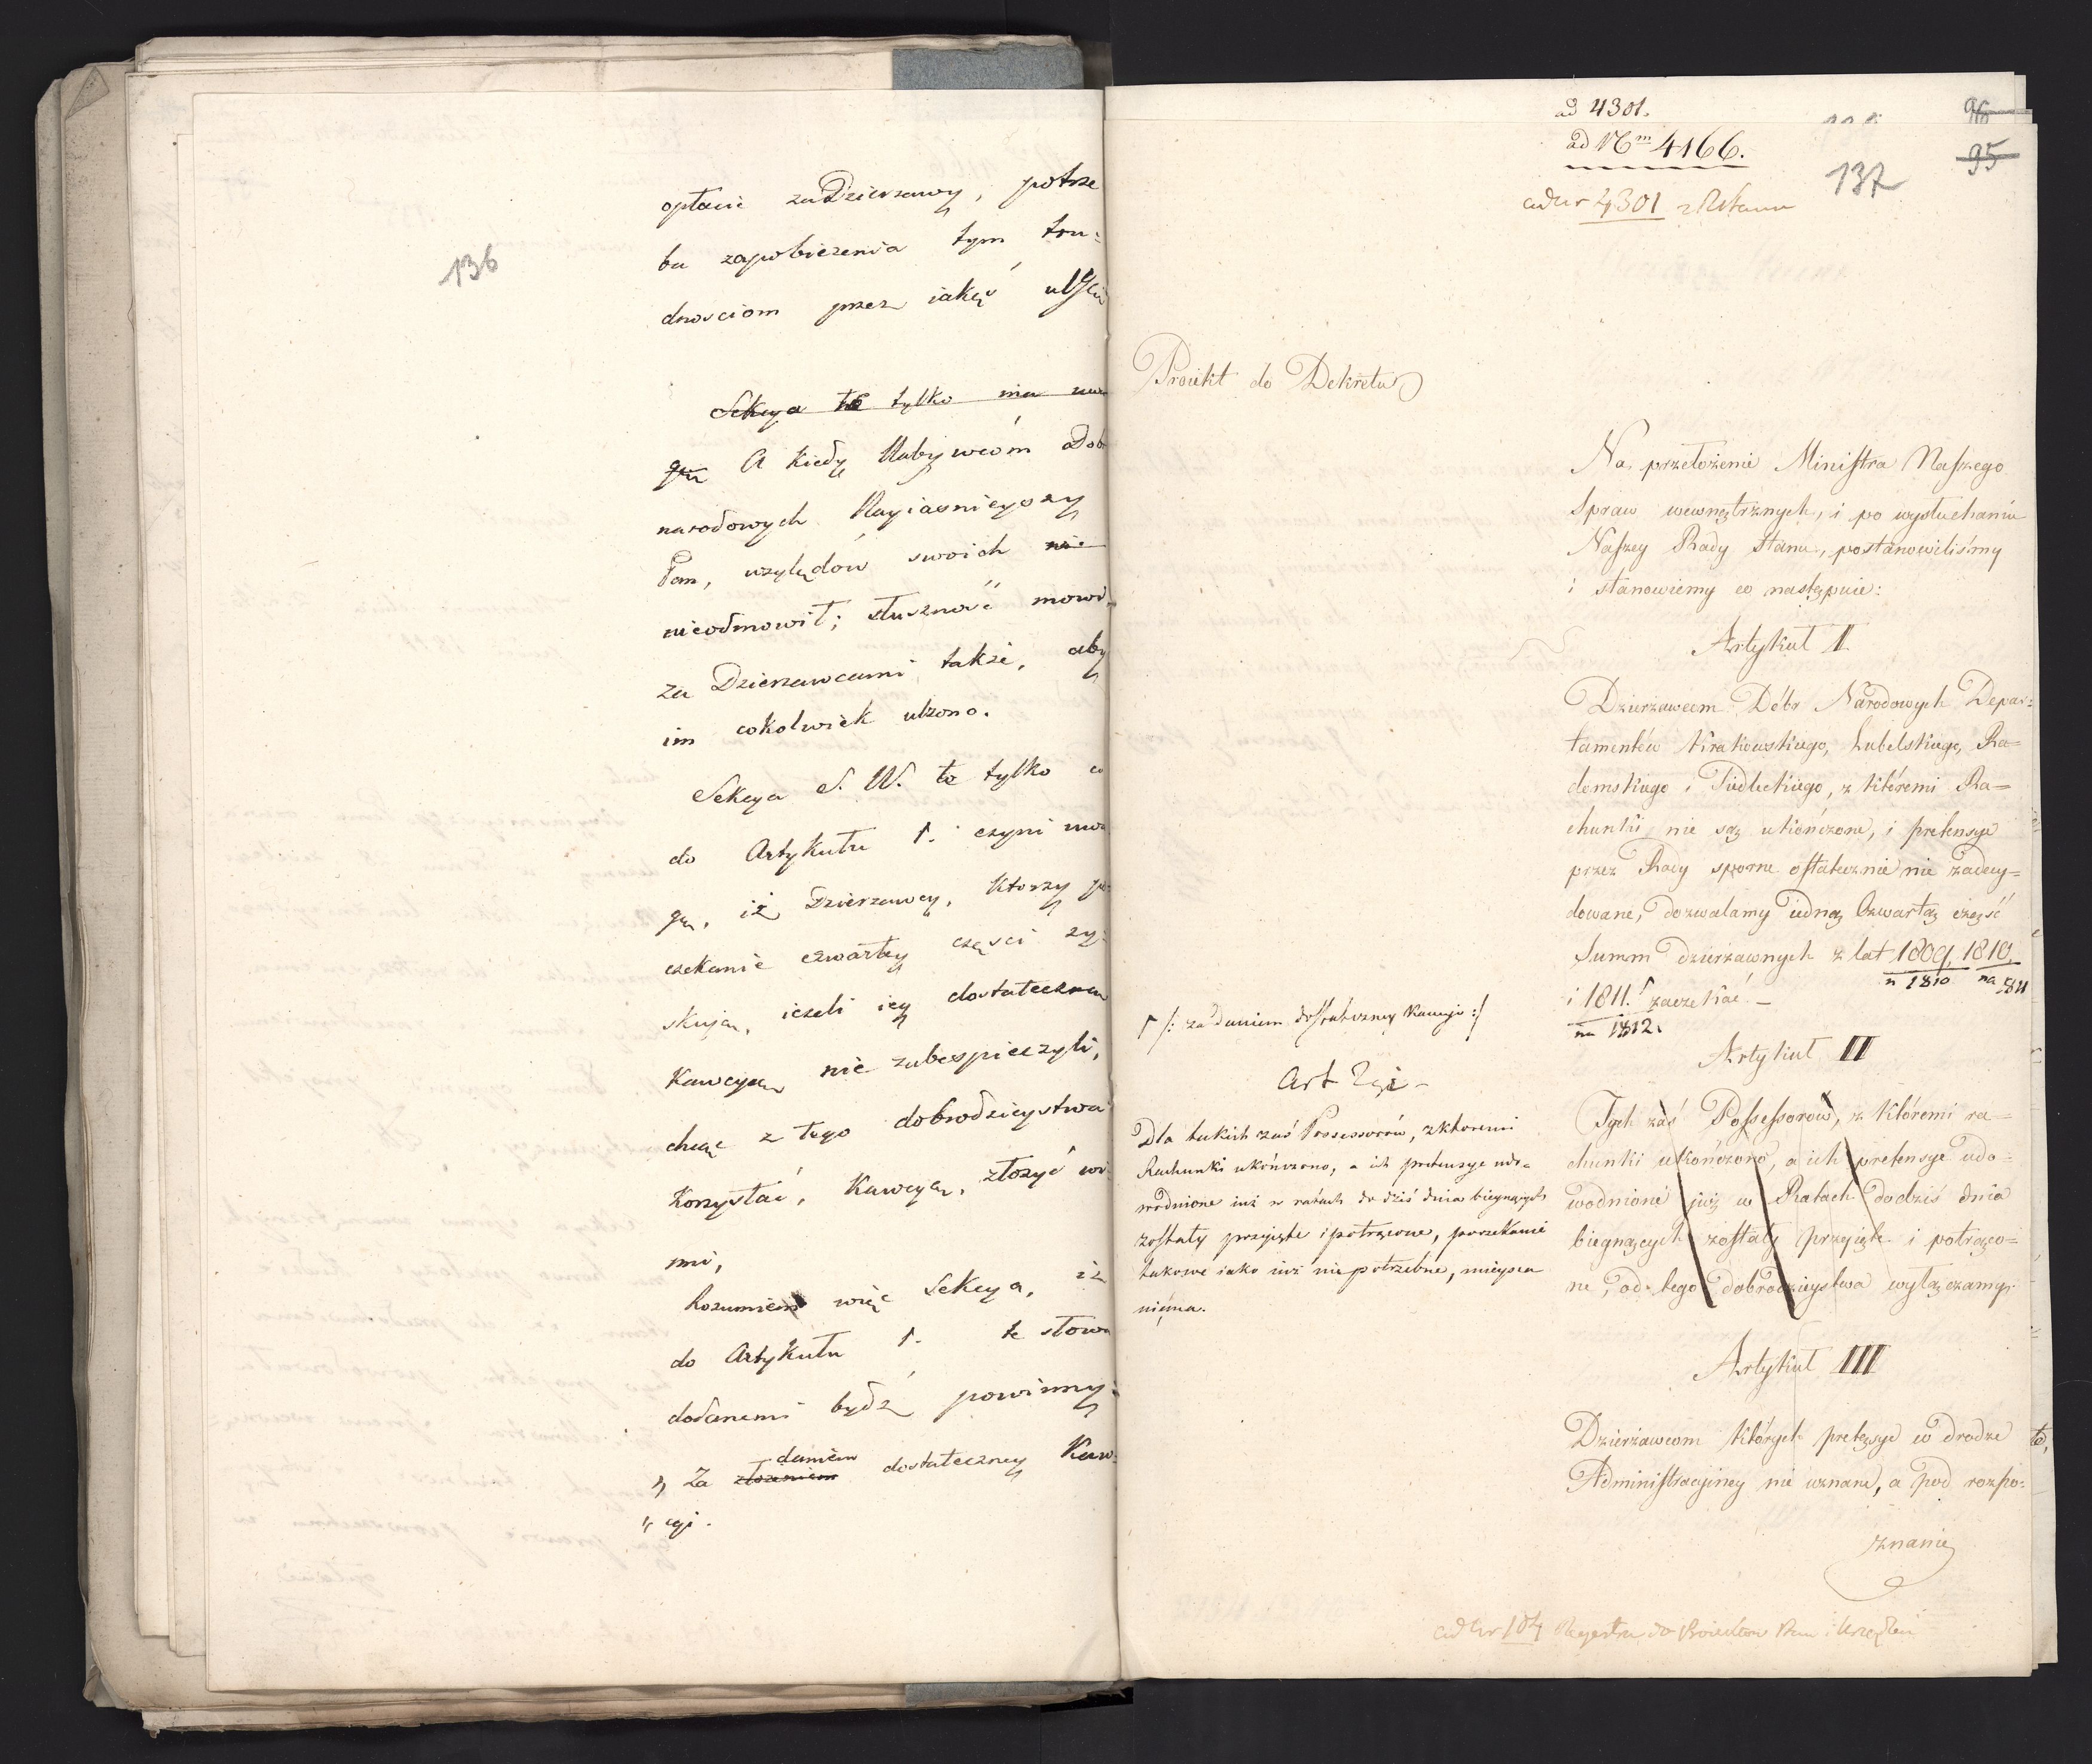 136
opłacie za Dzierzawy, potrze
bu zapobieżenia tym tru:
dnosciom przez iakąś ulgę
Sekcya to tylko ma uwa
gę A kiedy Nabywcóm Dob
narodowych Nayiasnieyszy
Pan, względów swoich nie
nieodmowił; słuszność mowi
za Dzierzawcami także, aby
im cokolwiek ulżono.
Sekcya S. W. to tylko co
do Artykułu 1. czyni uwa
gę, iż Dzierzawcy, ktorzy po
czekanie czwartey części zy:
skują, ieżeli iey dostateczną
Kawcyą nie zabespieczyli,
chcąc z tego dobrodzieystwa
korzystać, Kawcyą, złożyć wi
nni,
Rozumiem więc Sekcya, iż
do Artykułu 1. te słowa
dodanemi bydź powinny
daniem
„ Za złożeniem dostateczney Kaw:
„ cyi.
ad 4301.
ad Nm 4166.
ad Nr 4301 z R Stanu
137
96
95
Proiekt do Dekretu
Na przełożenie Ministra Naszego
Spraw wewnętrznych, i po wysłuchaniu
Naszey Rady Stanu, postanowiliśmy
i stanowiemy co następuie:
Artykuł I.
Dzierżawcom Dóbr Narodowych Depar:
tamentów Krakowskiego, Lubelskiego, Ra=
domskiego i Siedleckiego, z któremi Ra=
chunki nie są ukończone, i pretensye
przez Rady sporne ostatecznie nie zadecy=
dowane, dozwalamy iedną Czwartą część
Summ dzierżawnych z lat 1809, 1810,
n 1810 na 1811
i 1811. zaczekać. —
na 1812.
/: za daniem dostateczney kaucyi :/
Artykuł II
Tych zaś Possessorów, z któremi ra=
chunki ukończono, a ich pretensye udo=
wodnione już w Ratach do dziś dnia
biegnących zostały przyięte i potrąco=
ne, od tego dobrodzieystwa wyłączamy.
Art 2gi —
Dla takich zaś Possessorów, z któremi
Rachunki ukończono, a ich pretensye udo=
wodnione iuż w ratach do dziś dnia biegnących
zostały przyięte i potrącone, poczekanie
takowe iako iuż nie potrzebne, mieysca
niéma.
Artykuł III
Dzierżawcom których pretęsye w drodze
Administracyiney nie uznane, a pod rozpo:
znanie
ad Nr 104